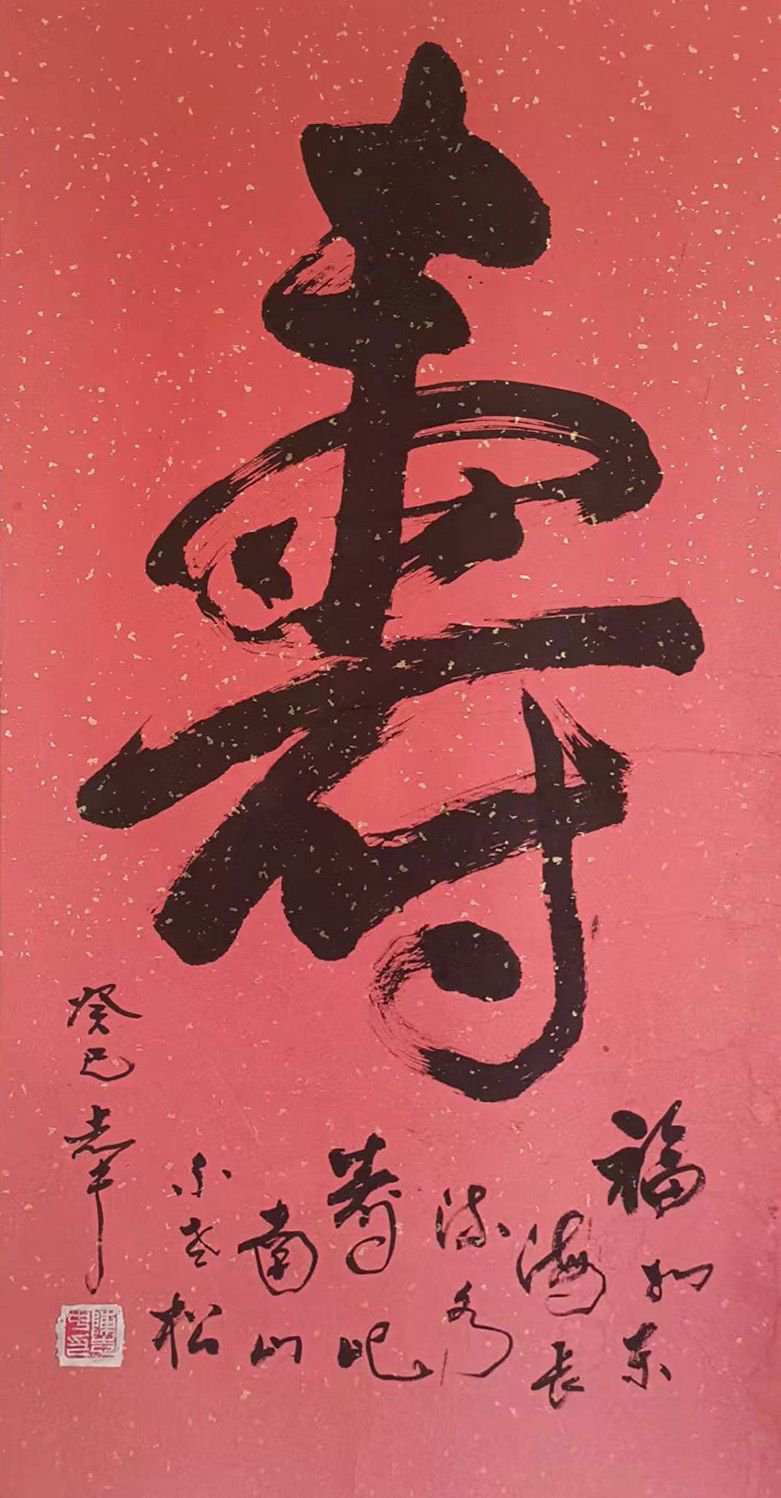 壽
福如东
海长
流水
壽比
南山
不老松
癸巳